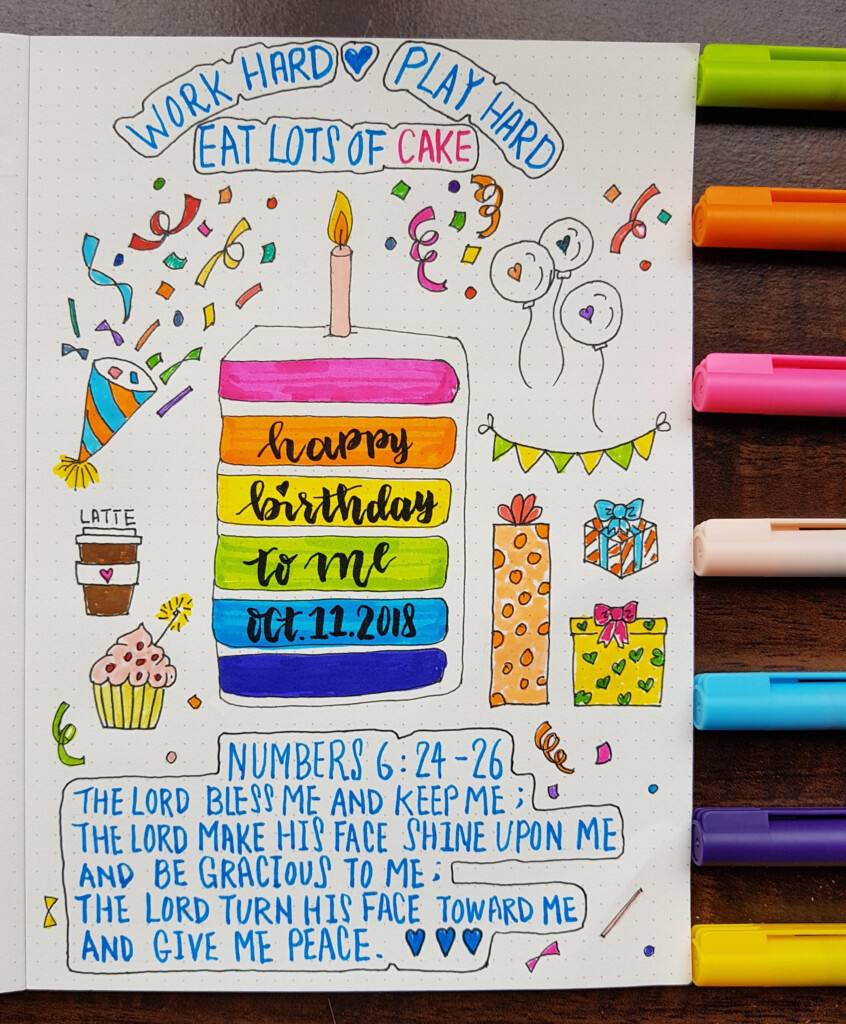 WORK HARD PLAY HARD
EAT LOTS OF CAKE
happy
birthday
to me
Oct. 11. 2018
LATTE
NUMBERS 6:24-26
THE LORD BLESS ME AND KEEP ME;
THE LORD MAKE HIS FACE SHINE UPON ME
AND BE GRACIOUS TO ME;
THE LORD TURN HIS FACE TOWARD ME
AND GIVE ME PEACE.